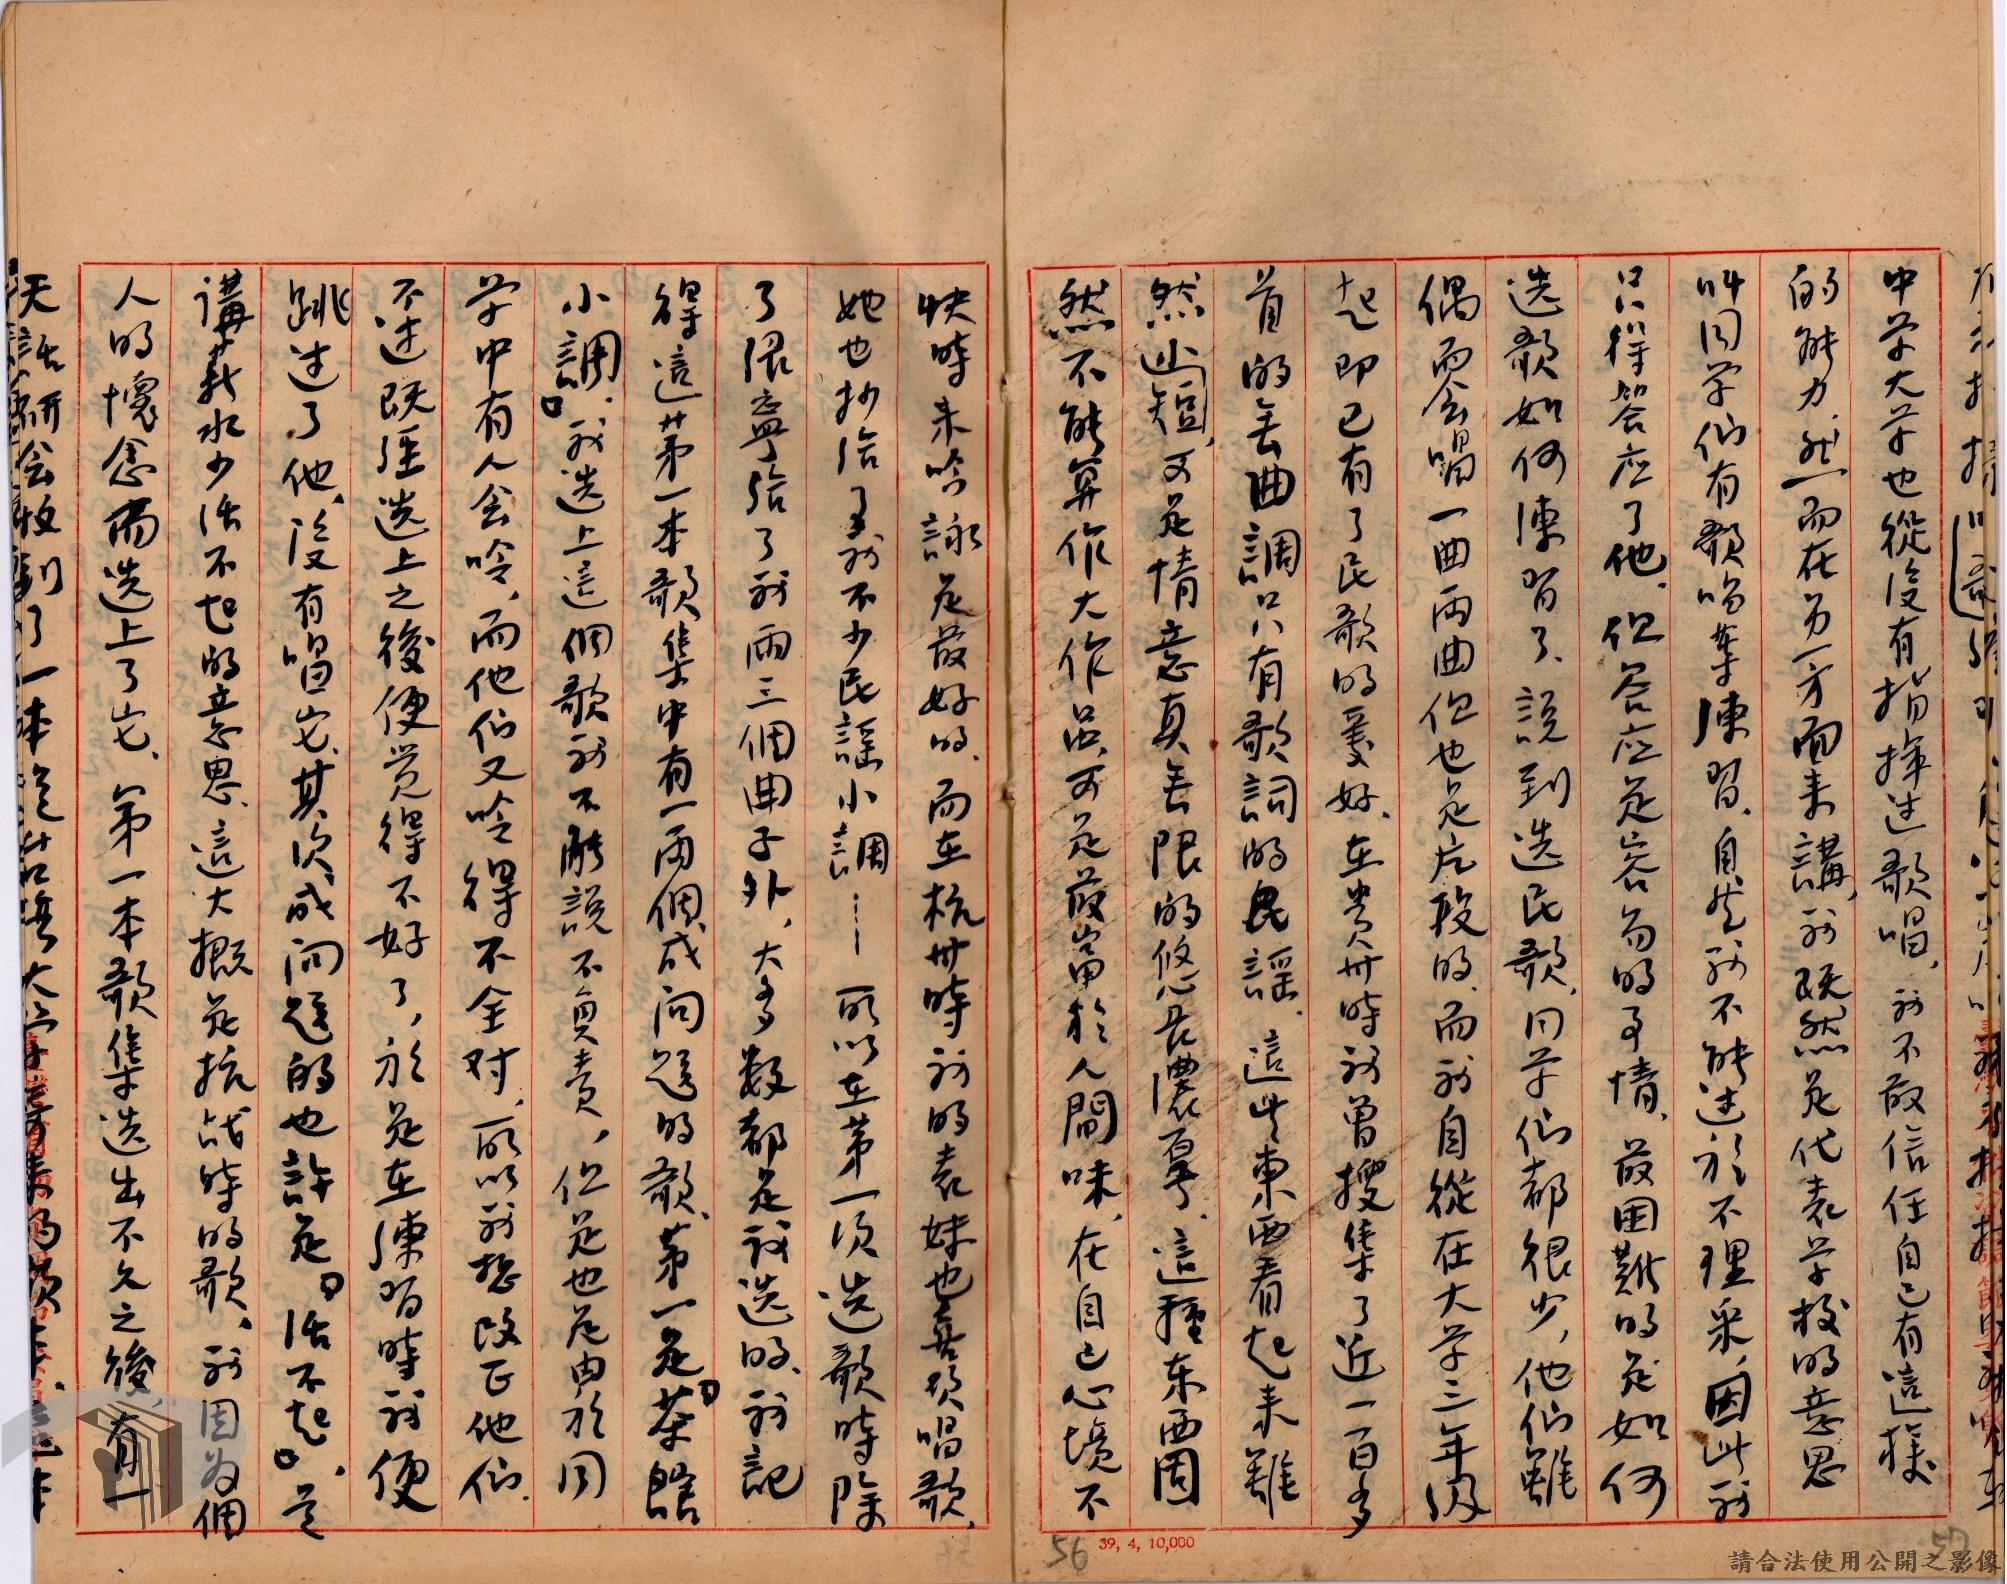 中学大学也從没有指揮过歌唱，我不敢信任自己有這様
的能力，然而在另一方面来講，我既然是代表学校的意思
叫同学们有歌唱葉練習，自然我不能过於不理采，因此我
只得答应了他，但答应是容易的事情，最困難的是如何
选歌如何練習了，說到选民歌，同学们都很少，他们雖
偶而会唱一曲两曲但也是片段的，而我自從在大学三年级
起即已有了民歌的爱好，在贵州時我曾搜集了近一百多
首的無曲調只有歌詞的民謡，這些東西看起来雖
然山短，可是情意真無限的悠長濃厚，這種东西固
然不能算作大作品，可是最富於人間味，在自己心境不
快時来吟詠是最好的，而在杭州時我的表妹也喜欢唱歌，
她也抄给了我不少民謡小調——所以在第一次选歌時除
了張寧给了我两三個曲子外，大多数都是我选的，我記
得這第一本歌集中有一两個成问题的歌，第一是「茶館
小調」，我选上這個歌我不能説不負責，但是也是由於同
学中有人会唸，而他们又唸得不全对，所以我想改正他们，
不过既經选上之後便觉得不好了，於是在練習時我便
跳过了他，没有唱它，其次成问题的也許是「活不起」，是
講薪水少活不起的意思，這大概是抗战時的歌，我因为個
人的懷念而选上了它，第一本歌集选出不久之後，有一
天話研会收到了一本
39, 4, 10,000
56
57
請合法使用公開之影像